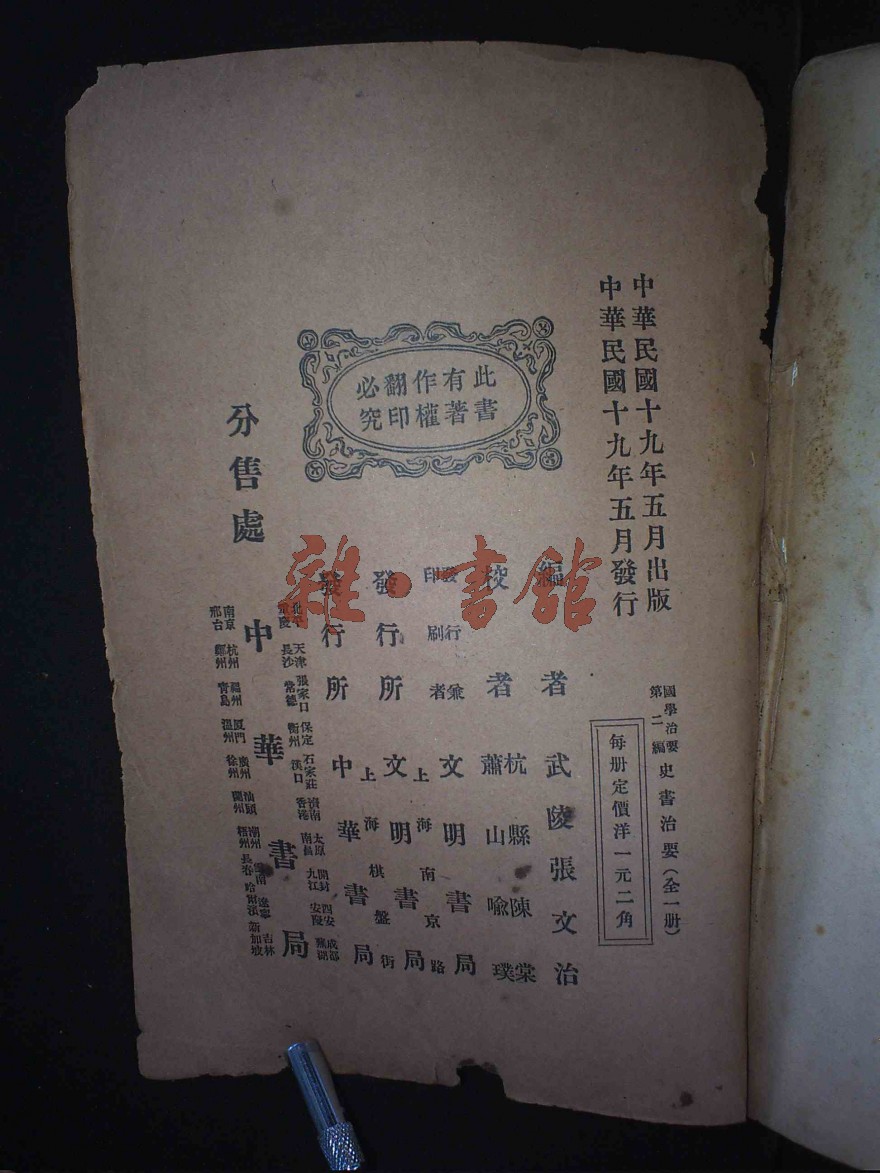 中華民國十九年五月出版
中華民國十九年五月發行
國學治要第二編 史書治要(全一册)
每册定價洋一元二角
此書有著作權翻印必究
編者 武陵張文治
校者 杭縣陳棠
蕭山喩璞
發行兼印刷者 文明書局
上海南京路
發行所 文明書局
上海棋盤街
發行所 中華書局
分售處 中華書局
北平 天津 張家口 保定 石家莊 濟南 太原 開封 西安 成都
重慶 長沙 常德 衡州 漢口 香港 南昌 九江 安慶 蕪湖
南京 杭州 福州 厦門 廣州 汕頭 潮州 雲南 遼寧 吉林
邢台 鄭州 青島 溫州 徐州 蘭州 長春 哈爾濱 新加坡
雜·書館